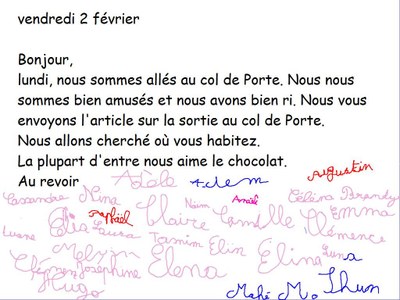 vendredi 2 février
Bonjour,
lundi, nous sommes allés au col de Porte. Nous nous
sommes bien amusés et nous avons bien ri. Nous vous
envoyons l'article sur la sortie au col de Porte.
Nous allons cherché où vous habitez.
La plupart d'entre nous aime le chocolat.
Au revoir
Adèle Adem Augustin
Cassandre Nina Naïm Anaël Céléna Brandy
Raphaël Claire Camille Emma
Laura Clémence
Jasmin Elin Elina Luna
Joséphine Elena
Hugo Mahé M.